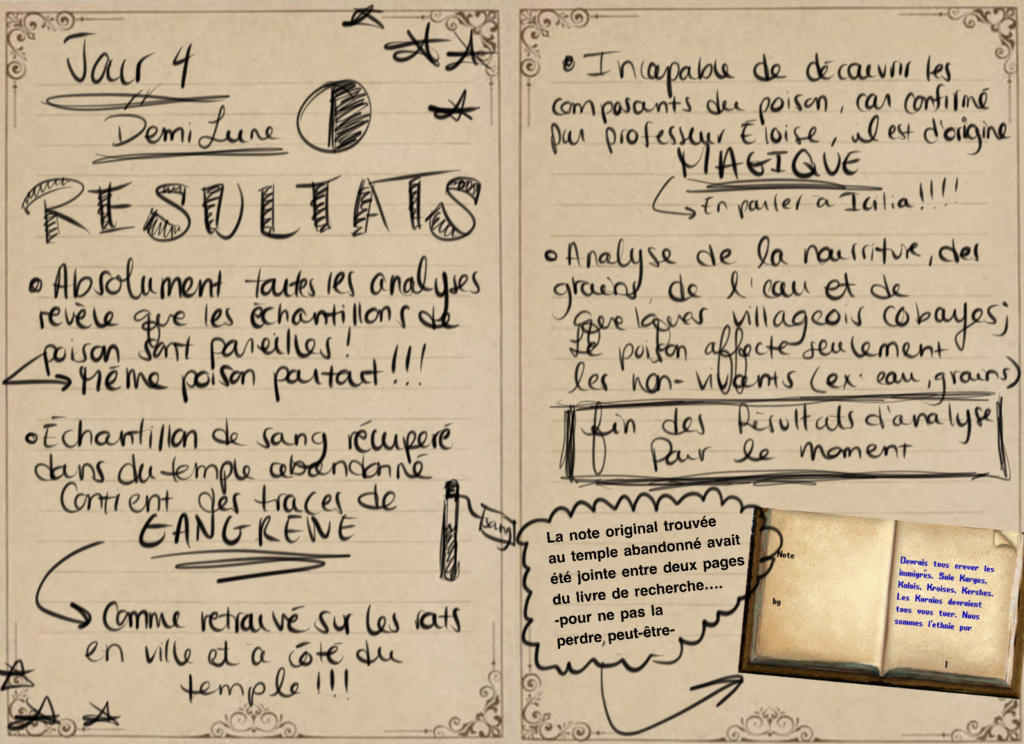 Jour 4
Demi Lune
RESULTATS
• Absolument toutes les analyses
révèle que les échantillons de
poison sont pareilles!
→ Même poison partout!!!
• Échantillon de sang récuperé
dans du temple abandonné
Contient des traces de
GANGRENE
→ Comme retrouvé sur les rats
en ville et a côté du
temple!!!
sang
• Incapable de découvrir les
composants du poison, car confirmé
par professeur Éloise, il est d'origine
MAGIQUE
→ En parler a Icilia!!!!
• Analyse de la nourriture, des
grains, de l'eau et de
quelques villageois cobayes;
Le poison affecte seulement
les non-vivants (ex: eau, grains)
fin des Résultats d'analyse
Pour le moment
La note original trouvée
au temple abandonné avait
été jointe entre deux pages
du livre de recherche....
-pour ne pas la
perdre, peut-être-
Note
by
Devrais tous crever les
immigrés. Sale Karges,
Kalois, Kroises, Kershes.
Les Korains devraient
tous vous tuer. Nous
sommes l'ethnie pur
1